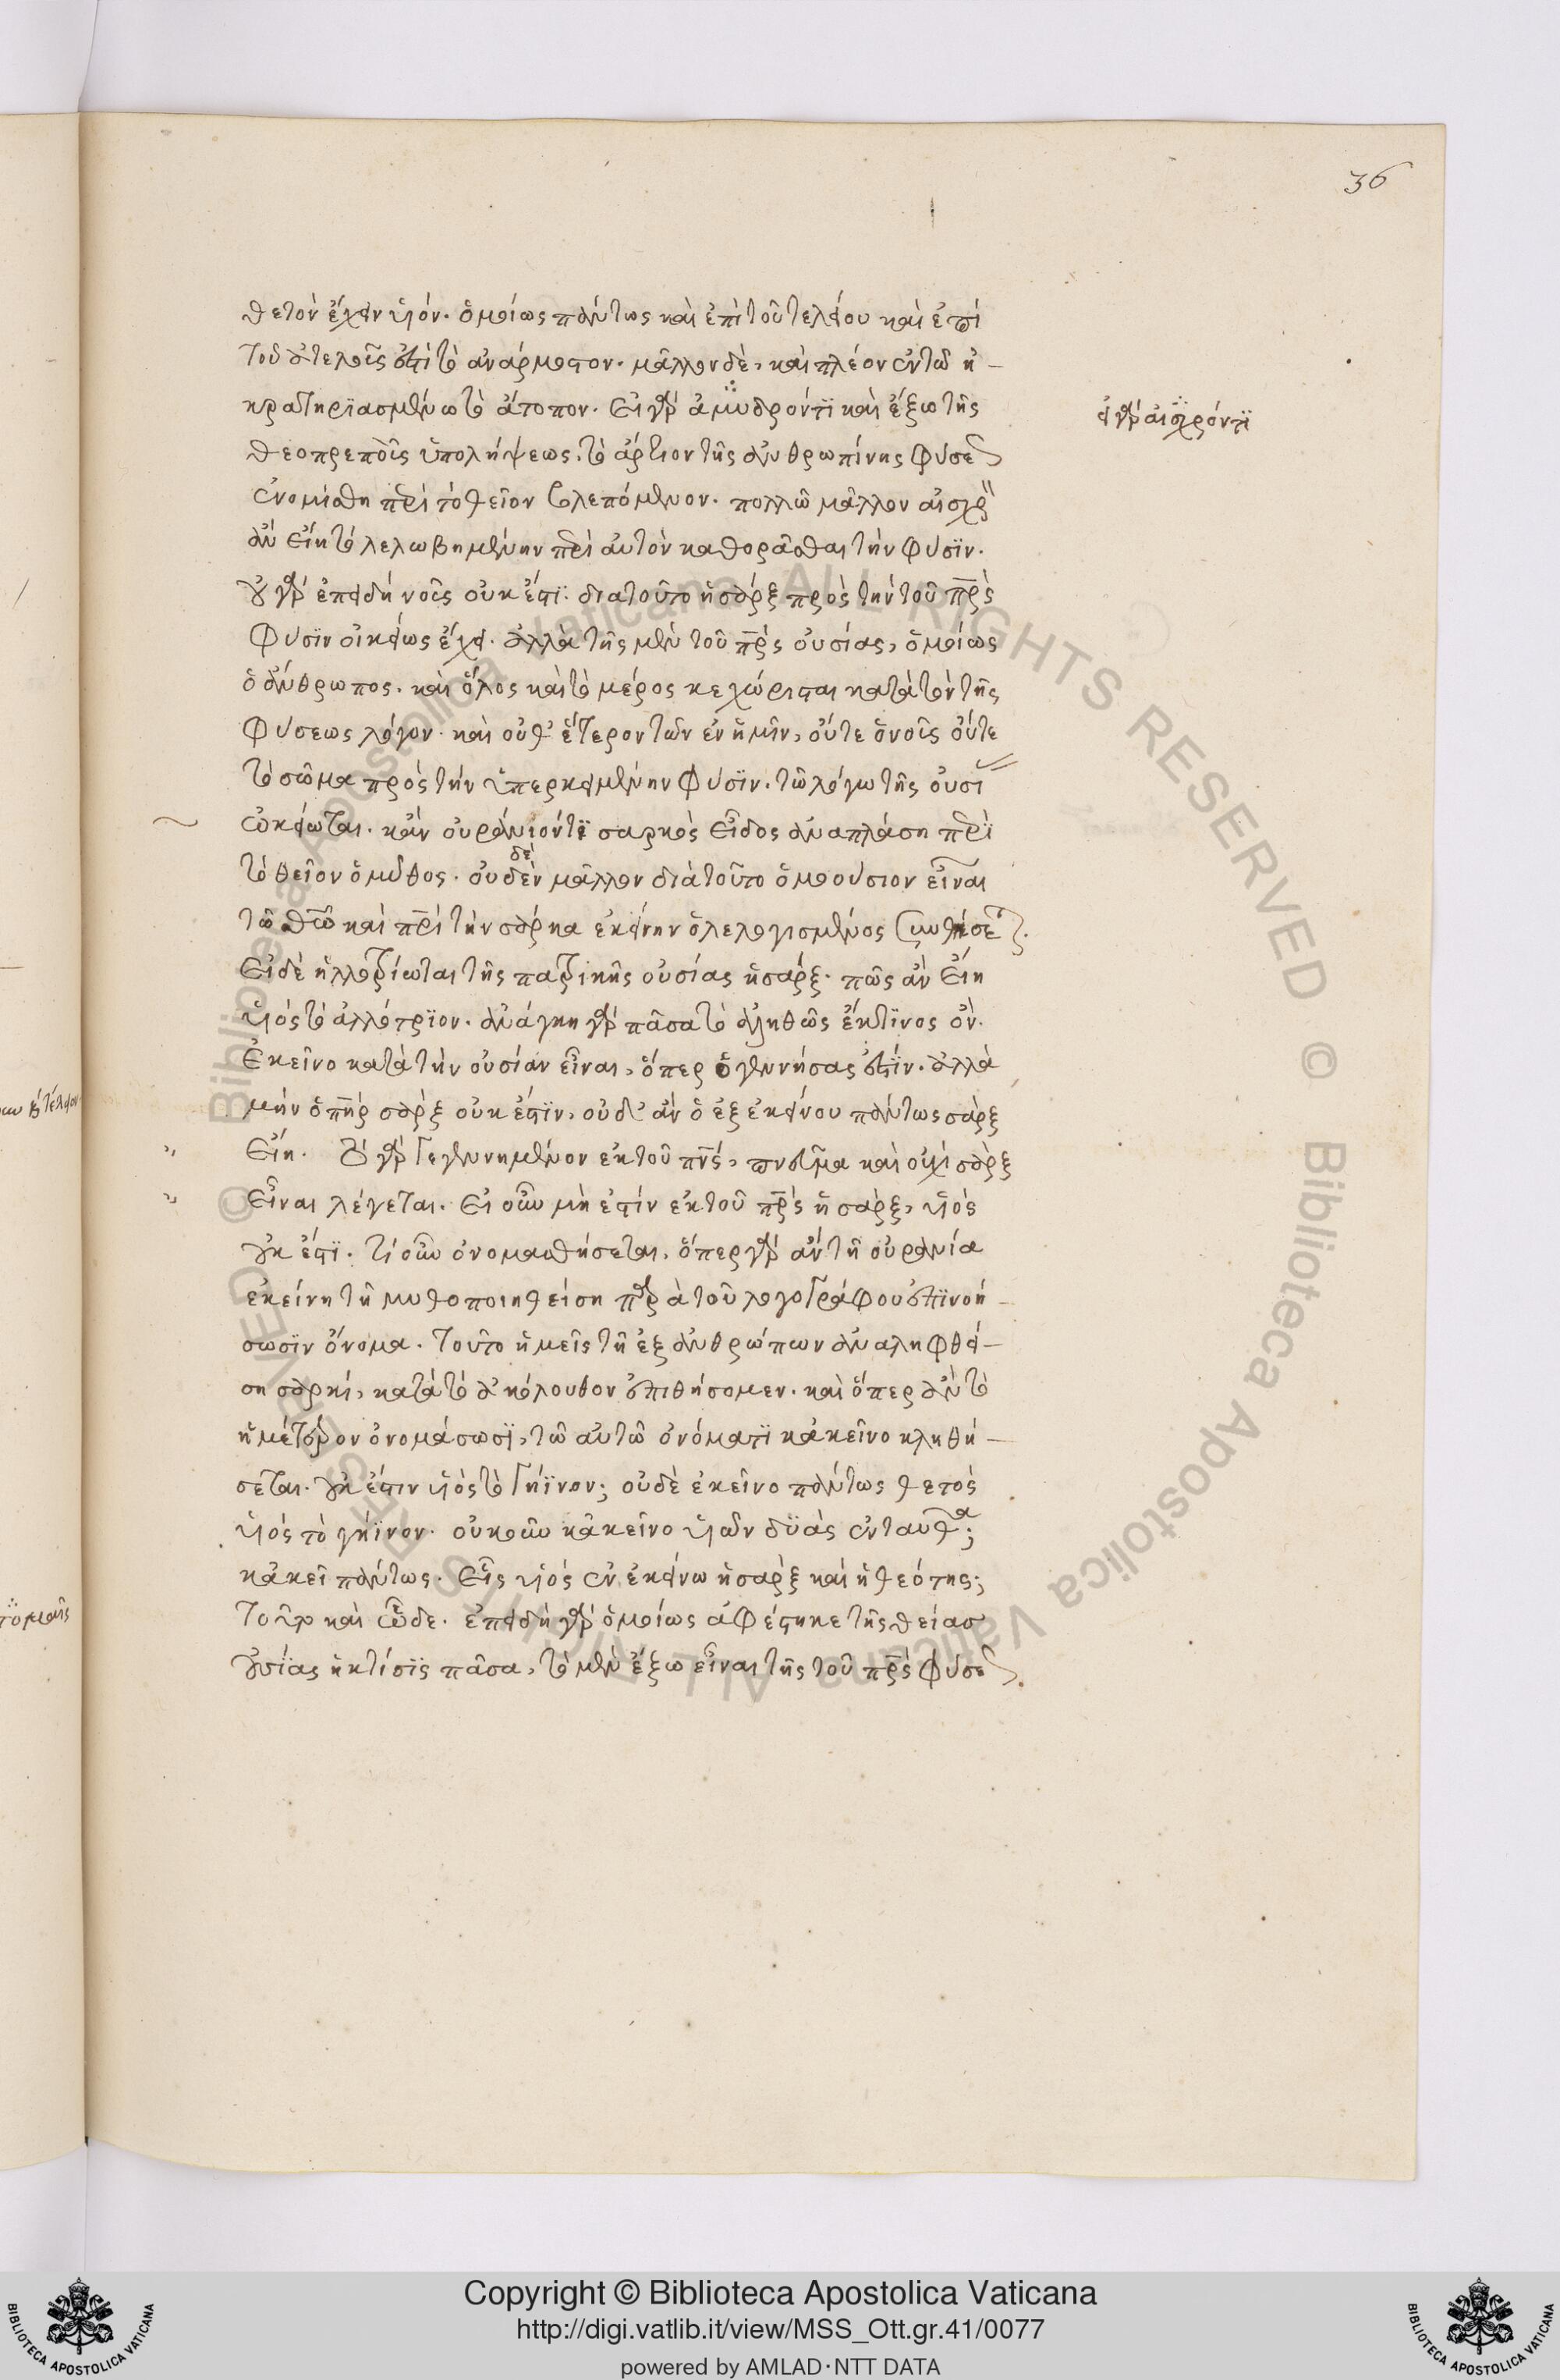 36
θετὸν ἔχειν υἱόν. ὁμοίως πάντως καὶ ἐπὶ τοῦ τελείου καὶ ἐπὶ
τοῦ ἀτελοῦς ἐστὶ τὸ ἀνάρμοστον. μᾶλλον δὲ, καὶ πλέον ἐν τῶ ἠ-
κρωτηριασμένω τὸ ἄτοπον. Εἰ γὰρ ἀμυδρόν τι καὶ ἔξω τῆς
εἰ γὰρ αἰσχρόν τι
θεοπρεποῦς ὑπολήψεως, τὸ ἄρτιον τῆς ἀνθρωπίνης φύσεως
ἐνομίσθη περὶ τὸ θεῖον βλεπόμενον. πολλῶ μᾶλλον αἰσχρ
ἂν εἴη τὸ λελωβημένην περὶ αὐτὸν καθορᾶσθαι τὴν φύσιν.
οὐ γὰρ ἐπειδὴ νοῦς οὐκ ἔστι. διατοῦτο ἡ σὰρξ πρὸς τὴν τοῦ πρς
φύσιν οἰκείως ἔχει. ἀλλὰ τῆς μὲν τοῦ πρς οὐσίας, ὁμοίως
ὁ ἄνθρωπος. καὶ ὅλος καὶ τὸ μέρος κεχώρισται κατὰ τὸν τῆς
φύσεως λόγον. καὶ οὐθ' ἕτερον τῶν ἐν ἡμῖν, οὔτε ὁ νοῦς οὔτε
τὸ σῶμα πρὸς τὴν ὑπερκειμένην φύσιν. τῶ λόγω τῆς οὐσίας
ὠκείωται. κἂν οὐράνιόν τι σαρκὸς εἶδος ἀναπλάση περὶ
τὸ θεῖον ὁ μῦθος. οὐδὲν δὲ μᾶλλον διὰ τοῦτο ὁμοούσιον εἶναι
τῶ θῶ καὶ περὶ τὴν σάρκα ἐκείνην ὁ λελογισμένος
Εἰ δὲ ἠλλοτρίωται τῆς πατρικῆς οὐσίας ἡ σάρξ. πῶς ἂν εἴη
υἱὸς τὸ ἀλλότριον. ἀνάγκη γὰρ πᾶσα τὸ ἀληθῶς ἔκ τινος ὂν.
Ἐκεῖνο κατὰ τὴν οὐσίαν εἶναι, ὅπερ ὁ γεννήσας ἐστίν. ἀλλὰ
μὴν ὁ πηρ σὰρξ οὐκ ἔστιν, οὐδ' ἂν ὁ ἐξ ἐκείνου πάντως σὰρξ
Εἴη. Τὸ γὰρ γεγεννημένον ἐκ τοῦ πνς, πνεῦμα καὶ οὐχὶ σὰρξ
Εἶναι λέγεται. Εἰ οὖν μὴ ἐστὶν ἐκ τοῦ πρς ἡ σὰρξ, υἱὸς
οὐκ ἔστι. τί οὖν ὀνομασθήσεται, ὅπερ γὰρ ἂν τῆ οὐρανία
ἐκείνη τῆ μυθοποιηθείση παρὰ τοῦ λογογράφου ἐπινοή-
σωσιν ὄνομα. τοῦτο ἡμεῖς τῆ ἐξ ἀνθρώπων ἀναληφθεί-
ση σαρκί, κατὰ τὸ ἀκόλουθον ἐπιθήσομεν. καὶ ὅπερ ἂν τὸ
ἡμέτερον ὀνομάσωσι, τῶ αὐτῶ ὀνόματι κἀκεῖνο κληθή-
σεται. οὐκ ἔστιν υἱὸς τὸ γήϊνον; οὐδὲ ἐκεῖνο πάντως θετὸς
υἱὸς τὸ γήϊνον. οὐκοῦν κἀκεῖνο υἱῶν δυὰς ἐνταῦθα;
κἀκεῖ πάντως. Εἷς υἱὸς ἐν ἐκείνω ἡ σὰρξ καὶ ἡ θεότης;
Τοῦτο καὶ ὧδε. ἐπειδὴ γὰρ ὁμοίως ἀφέστηκε τῆς θείας
οὐσίας ἡ κτίσις πᾶσα, τὸ μὲν ἔξω εἶναι τῆς τοῦ πρς φύσεως.
© Biblioteca Apostolica Vaticana ALL RIGHTS RESERVED © Biblioteca Apostolica Vaticana ALL RIGHTS RESERVED
Copyright © Biblioteca Apostolica Vaticana
http://digi.vatlib.it/view/MSS_Ott.gr.41/0077
powered by AMLAD·NTT DATA
BIBLIOTECA APOSTOLICA VATICANA
BIBLIOTECA APOSTOLICA VATICANA